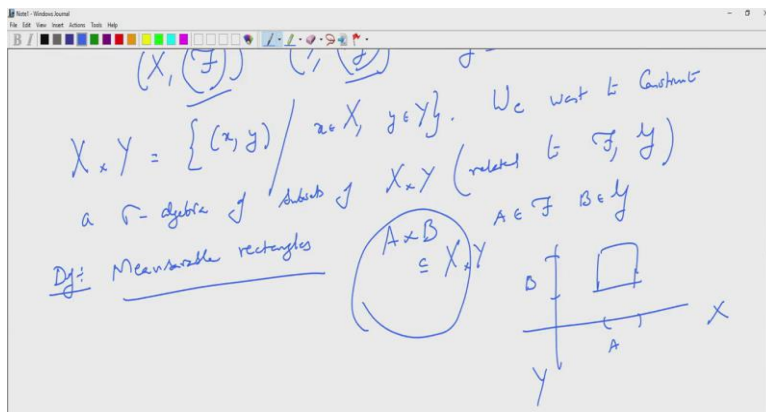 Note1 - Windows Journal
File Edit View Insert Actions Tools Help
B I
(X, F)
X × Y = {(x, y) / x ∈ X, y ∈ Y}. We want to Construct
a σ-algebra of subsets of X × Y (related to F, G)
Def: Measurable rectangles A × B ⊆ X × Y A ∈ F B ∈ G
B
A
X
Y